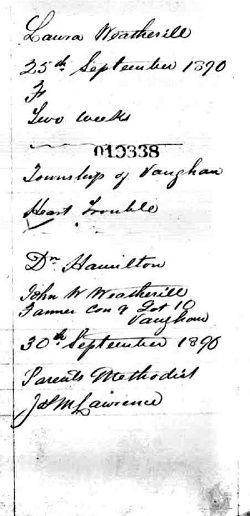 Laura Weatherill
25th September 1890
F
Two weeks
013338
Township of Vaughan
Heart Trouble
Dr Hamilton
John W Weatherill
Farmer Con 9 Lot 10
Vaughan
30th September 1890
Parents Methodist
Jas M Lawrence